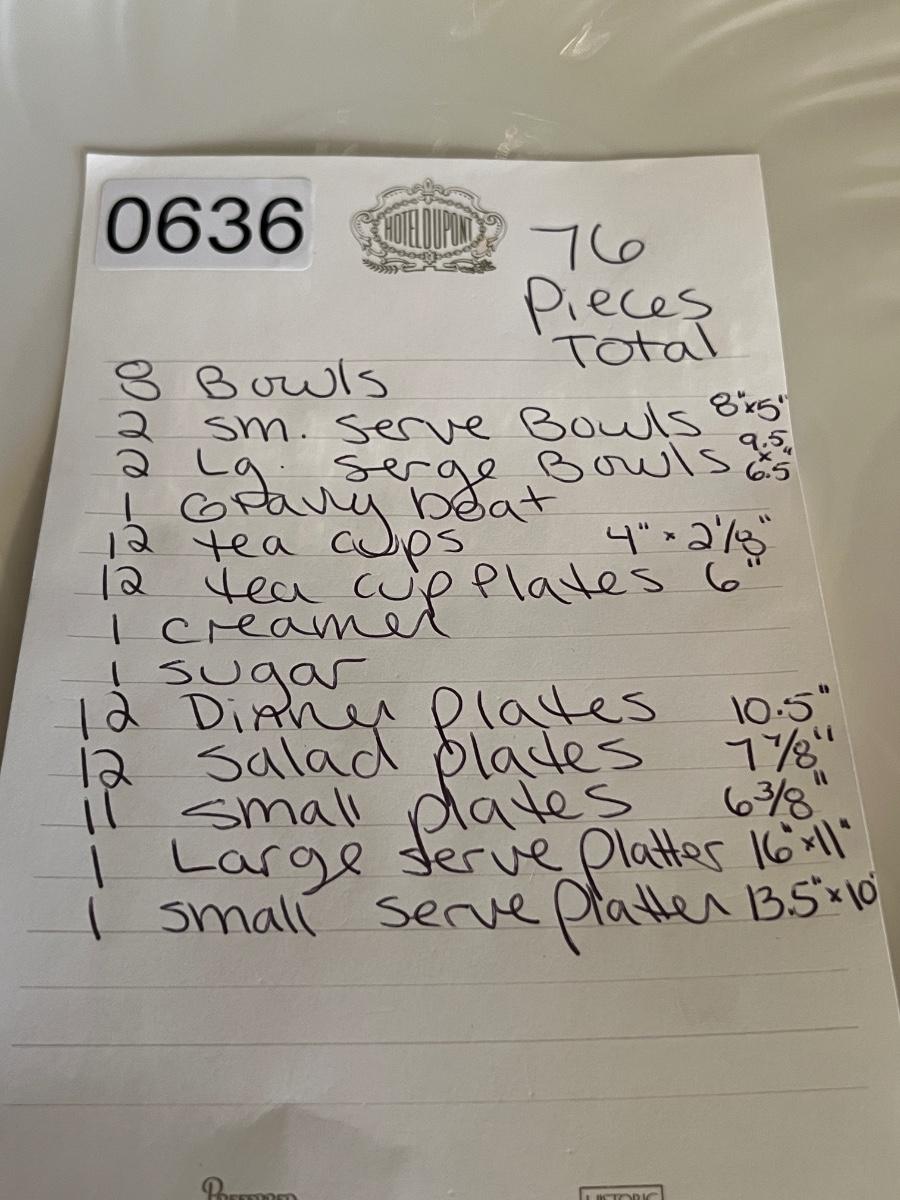 0636
HOTEL DUPONT
76
Pieces
Total
8 Bowls
2 sm. serve Bowls 8"x5"
2 Lg. serge Bowls 9.5 x 6.5"
1 Gravy boat
12 tea cups 4" x 2 1/8"
12 tea cup Plates 6"
1 creamer
1 sugar
12 Dinner Plates 10.5"
12 Salad plates 7 7/8"
11 small plates 6 3/8"
1 Large serve Platter 16"x11"
1 small serve Platter 13.5"x10"
PREFERRED
HISTORIC